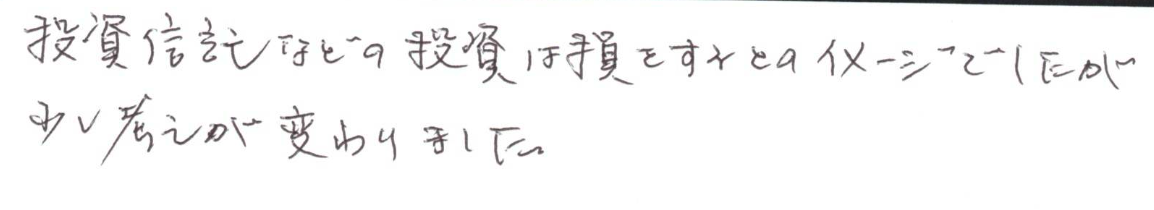 投資信託などの投資は損をするとのイメージでしたが
少し考えが変わりました